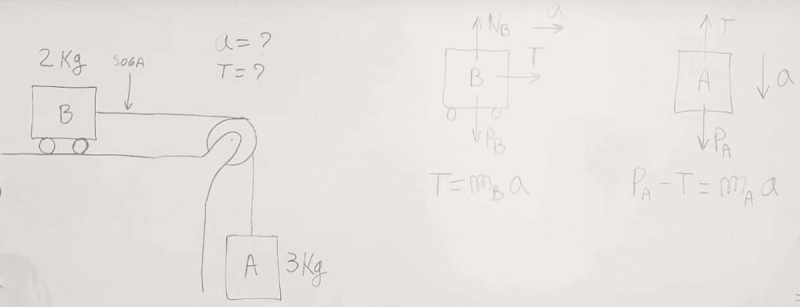 2 Kg
SOGA
a = ?
T = ?
B
A
3 Kg
N_B
a
T
B
P_B
T = m_B a
T
A
a
P_A
P_A - T = m_A a